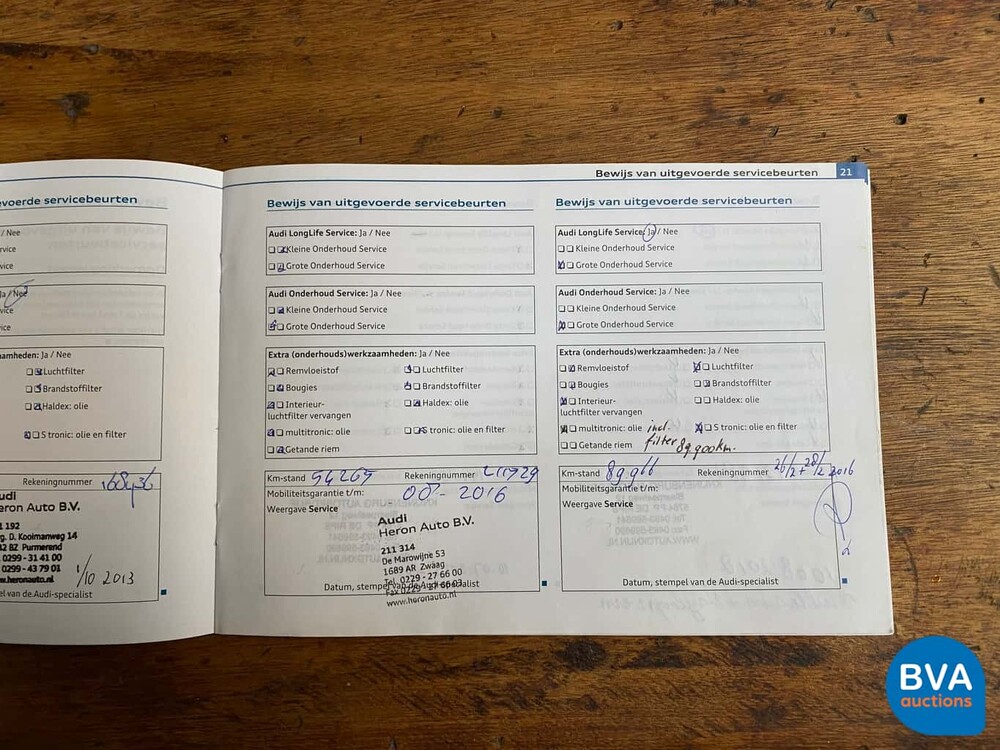 Bewijs van uitgevoerde servicebeurten 21
evoerde servicebeurten
/ Nee
rvice
vice
a / Nee
vice
ice
aamheden: Ja / Nee
Luchtfilter
Brandstoffilter
Haldex: olie
S tronic: olie en filter
Rekeningnummer 168436
udi
eron Auto B.V.
1 192
g. D. Kooimanweg 14
42 BZ Purmerend
0299 - 31 41 00
0299 - 43 79 01
w.heronauto.nl
1/10 2013
el van de Audi-specialist
Bewijs van uitgevoerde servicebeurten
Audi LongLife Service: Ja / Nee
Kleine Onderhoud Service
Grote Onderhoud Service
Audi Onderhoud Service: Ja / Nee
Kleine Onderhoud Service
Grote Onderhoud Service
Extra (onderhouds)werkzaamheden: Ja / Nee
Remvloeistof Luchtfilter
Bougies Brandstoffilter
Interieur- Haldex: olie
luchtfilter vervangen
multitronic: olie S tronic: olie en filter
Getande riem
Km-stand 54265 Rekeningnummer
Mobiliteitsgarantie t/m: 08 - 2016
Weergave Service
Audi
Heron Auto B.V.
211 314
De Marowijne 53
1689 AR Zwaag
Tel. 0229 - 27 66 00
Fax 0229 - 27 66 03
www.heronauto.nl
Datum, stempel van de Audi-specialist
Bewijs van uitgevoerde servicebeurten
Audi LongLife Service: Ja / Nee
Kleine Onderhoud Service
Grote Onderhoud Service
Audi Onderhoud Service: Ja / Nee
Kleine Onderhoud Service
Grote Onderhoud Service
Extra (onderhouds)werkzaamheden: Ja / Nee
Remvloeistof Luchtfilter
Bougies Brandstoffilter
Interieur- Haldex: olie
luchtfilter vervangen
multitronic: olie incl. S tronic: olie en filter
Getande riem filter 89.900km.
Km-stand 89966 Rekeningnummer 26/2 + 28/2 2016
Mobiliteitsgarantie t/m:
Weergave Service
Datum, stempel van de Audi-specialist
BVA
auctions